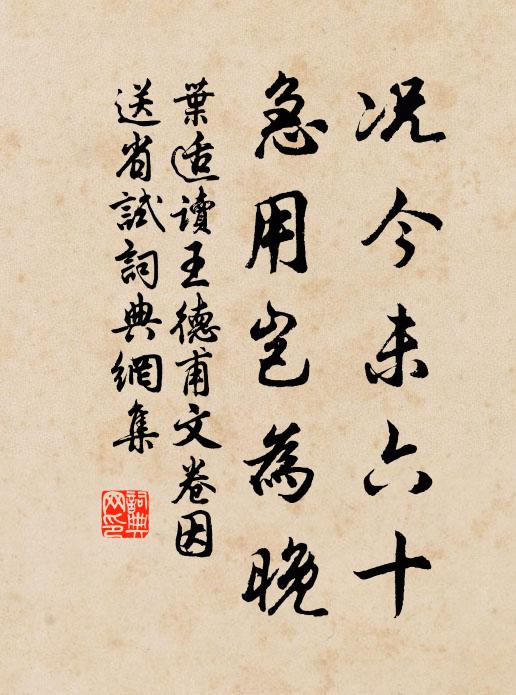 况今未六十
急用岂為晚
葉适讀王德甫文卷因
送省試詞典網集
詞典
网印